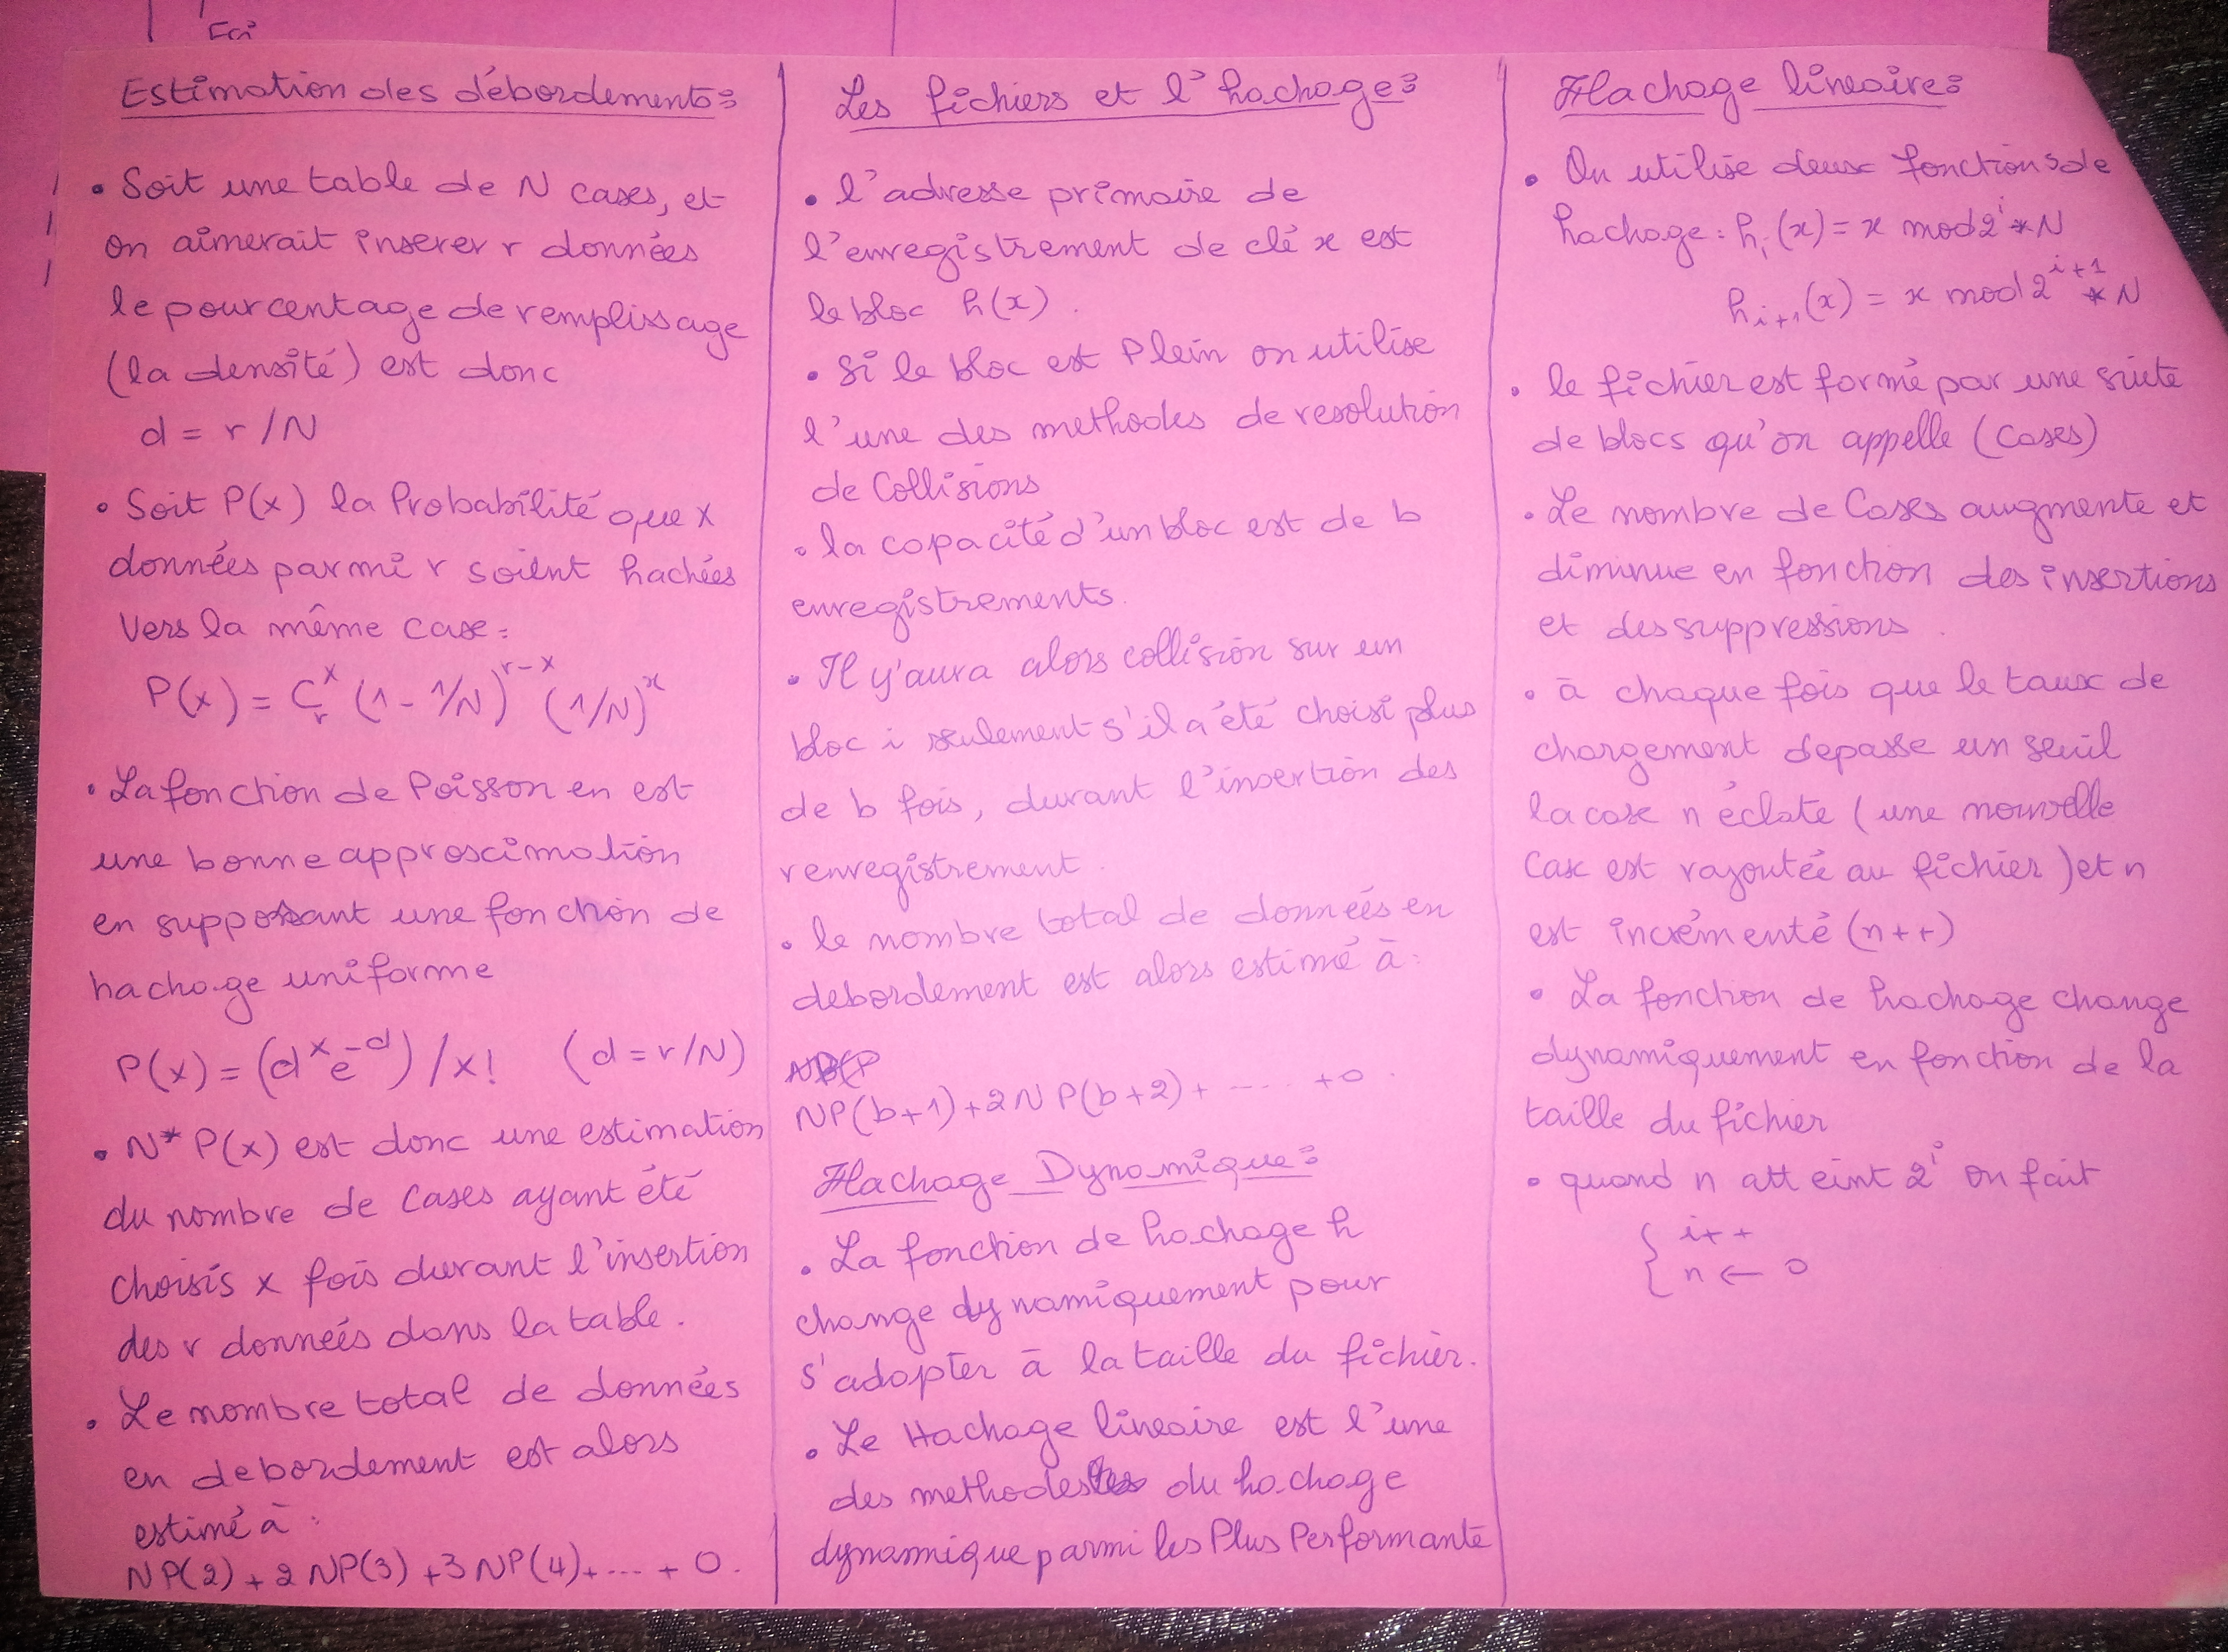 Estimation des débordements:
• Soit une table de N cases, et
on aimerait inserer r données
le pourcentage de remplissage
(la densité) est donc
d = r/N
• Soit P(x) la Probabilité que x
données parmi r soient hachées
vers la même case:
P(x) = C_r^x (1 - 1/N)^{r-x} (1/N)^x
• La fonction de Poisson en est
une bonne approximation
en supposant une fonction de
hachage uniforme
P(x) = (d^x e^{-d}) / x! (d = r/N)
• N* P(x) est donc une estimation
du nombre de cases ayant été
choisis x fois durant l'insertion
des r données dans la table.
• Le nombre total de données
en debordement est alors
estimé à :
NP(2) + 2 NP(3) + 3 NP(4) + ... + 0.
Les fichiers et l'hachage:
• l'adresse primaire de
l'enregistrement de clé x est
le bloc h(x).
• Si le bloc est Plein on utilise
l'une des methodes de resolution
de Collisions
• la capacité d'un bloc est de b
enregistrements.
• Il y'aura alors collision sur un
bloc i seulement s'il a été choisi plus
de b fois, durant l'insertion des
r enregistrement.
• le nombre total de données en
debordement est alors estimé à:
NP(b+1) + 2NP(b+2) + ..... + 0.
Hachage Dynamique:
• La fonction de hachage h
change dynamiquement pour
s'adapter à la taille du fichier.
• Le Hachage lineaire est l'une
des methodes du hachage
dynamique parmi les Plus Performante
Hachage lineaire:
• On utilise deux fonctions de
hachage: h_i(x) = x mod 2^i * N
h_{i+1}(x) = x mod 2^{i+1} * N
• le fichier est formé par une suite
de blocs qu'on appelle (Cases)
• Le nombre de Cases augmente et
diminue en fonction des insertions
et des suppressions.
• à chaque fois que le taux de
chargement depasse un seuil
la case n éclate (une nouvelle
case est rajoutée au fichier) et n
est incrémenté (n++)
• La fonction de hachage change
dynamiquement en fonction de la
taille du fichier
• quand n atteint 2^i on fait
{ i++
{ n ← 0